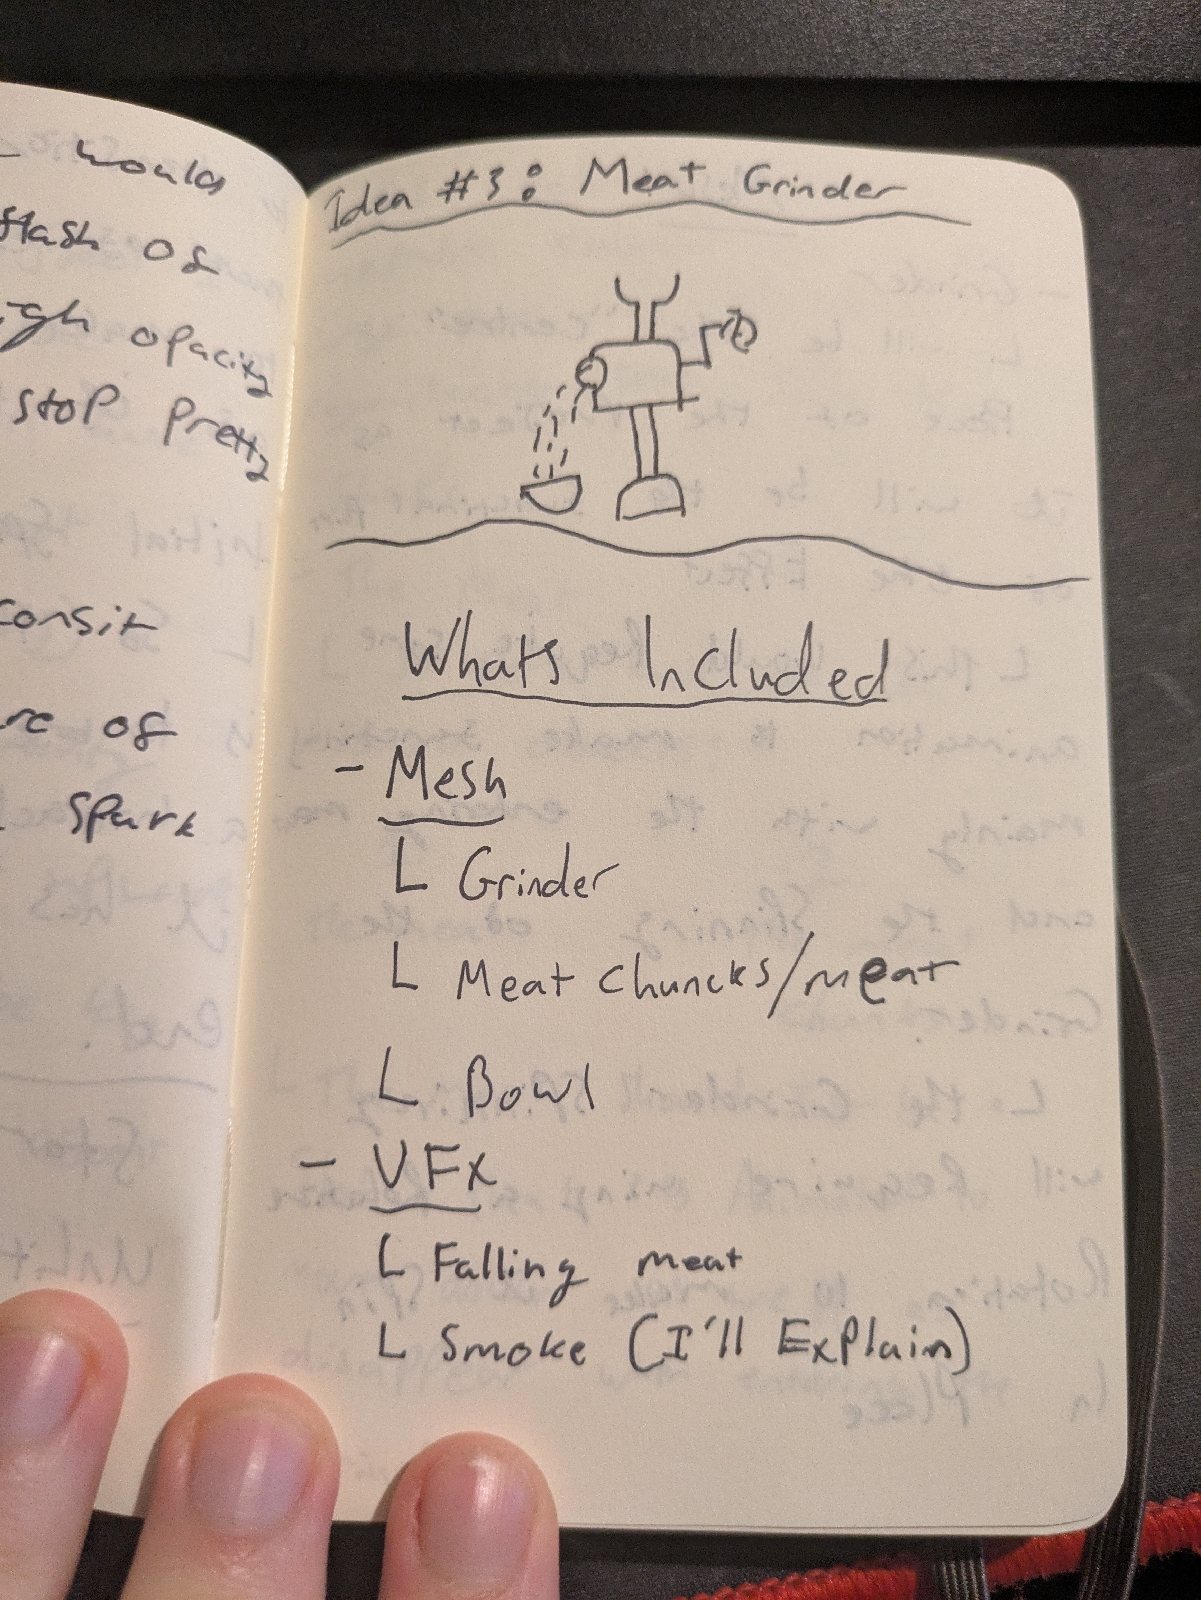 would
flash of
igh opacity
stop pretty
consit
of
spark
Idea #3: Meat Grinder
Whats Included
- Mesh
L Grinder
L Meat Chuncks/meat
L Bowl
- VFx
L Falling meat
L Smoke (I'll Explain)